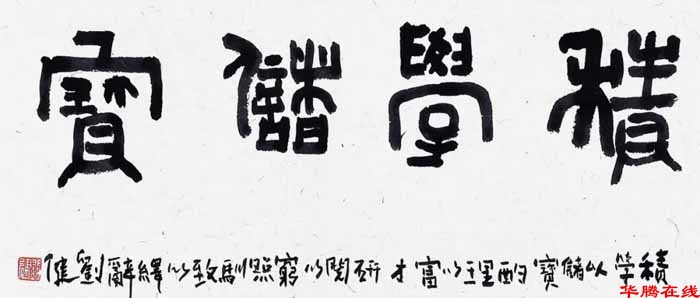 積學儲寶
積學以儲寶酌理以富才研閱以窮照馴致以繹辭劉健
华腾在线